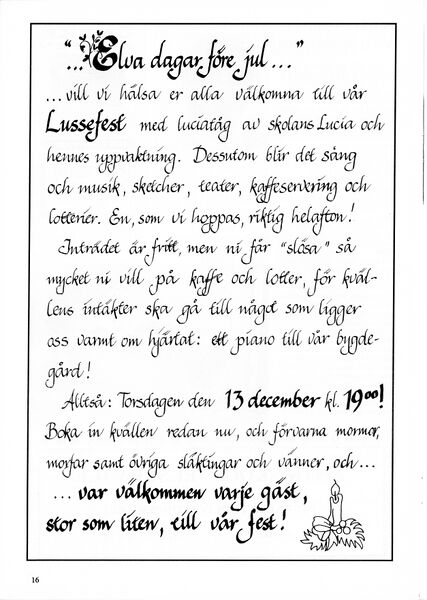 “...Elva dagar före jul...”
...vill vi hälsa er alla välkomna till vår
Lussefest med luciatåg av skolans Lucia och
hennes uppvaktning. Dessutom blir det sång
och musik, sketcher, teater, kaffeservering och
lotterier. En, som vi hoppas, riktig helafton!
Inträdet är fritt, men ni får “slösa” så
mycket ni vill på kaffe och lotter, för kväl-
lens intäkter ska gå till något som ligger
oss varmt om hjärtat: ett piano till vår bygde-
gård!
Alltså: Torsdagen den 13 december kl. 19⁰⁰!
Boka in kvällen redan nu, och förvarna mormor,
morfar samt övriga släktingar och vänner, och...
...var välkommen varje gäst,
stor som liten, till vår fest!
16